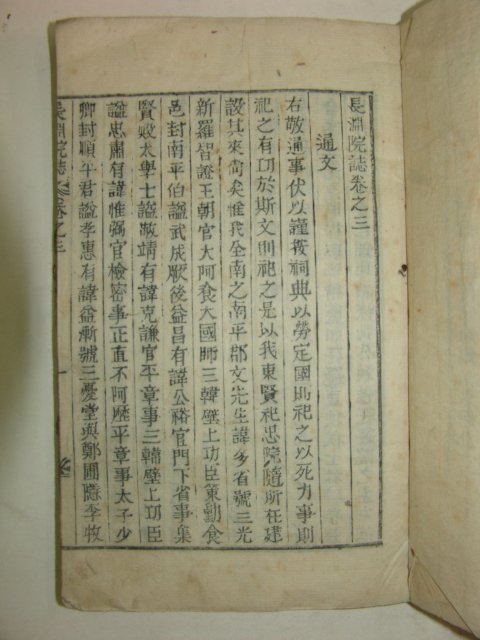 長淵院誌卷之三
通文
右敬通事伏以謹按祠典以勞定國則祀之以死力事則
祀之有功於斯文則祀之是以我東賢祀忠院隨所在建
設其來尙矣惟我全南之南平郡文先生諱多省號三光
新羅智證王朝官大阿飡大國師三韓壁上功臣策勳食
邑封南平伯諡武成厥後益昌有諱公裕官門下省事集
賢殿太學士諡敬靖有諱克謙官平章事三韓壁上功臣
諡忠肅有諱惟弼官檢密事正直不阿歷平章事太子少
卿封順平君諡孝惠有諱益漸號三憂堂與鄭圃隱李牧
長淵院誌 卷之三 一